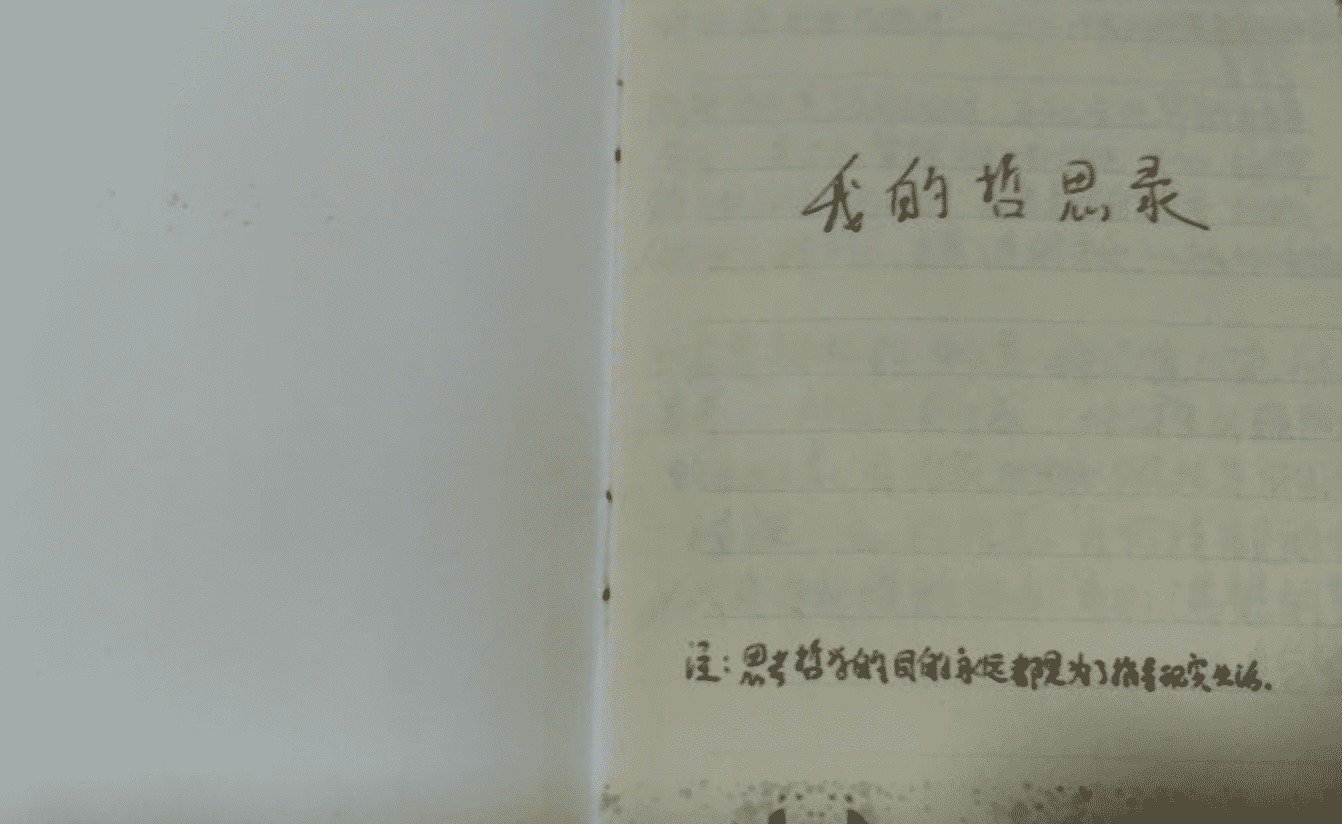 我的哲思录
注：思考哲学的目的永远都是为了指导现实生活.